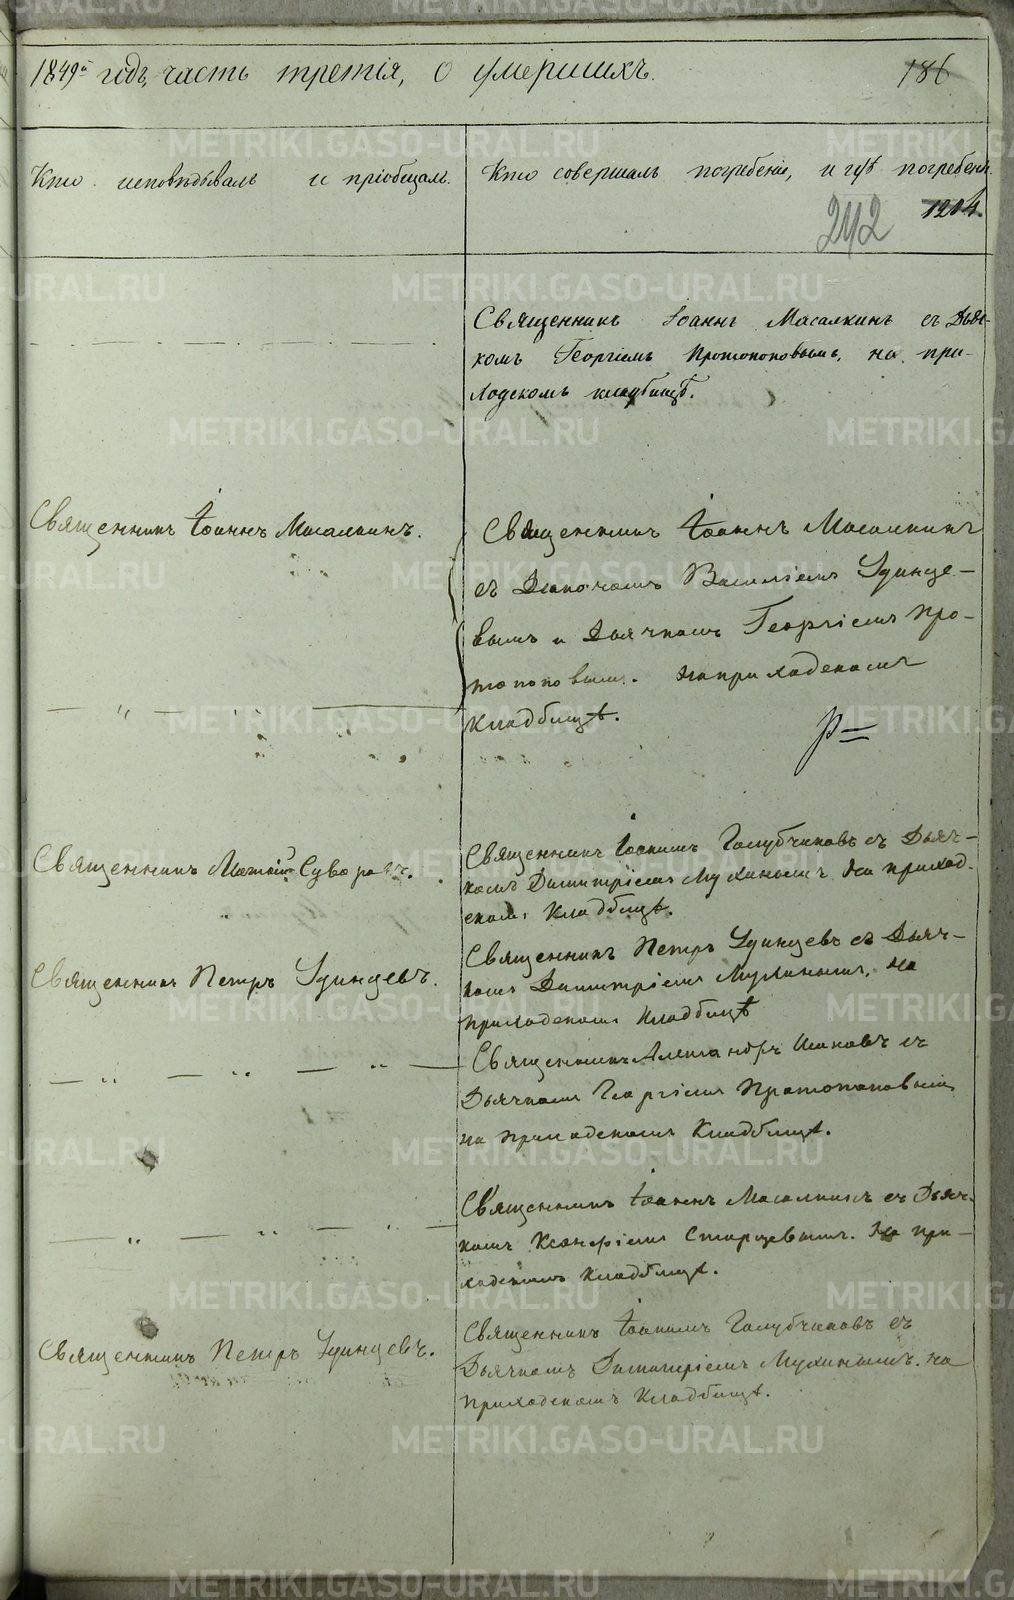 1849й годъ, часть третія, о умершихъ.
186
Кто исповѣдывалъ и пріобщалъ.
Кто совершалъ погребеніе, и гдѣ погребены.
1204.
242
Священникъ Іоаннъ Масалкинъ съ Дьяч-
комъ Георгіемъ Протопоповымъ, на при-
ходскомъ кладбищѣ.
Священникъ Іоаннъ Масалкинъ.
Священникъ Іоаннъ Масалкинъ
съ Діакономъ Василіемъ Удинце-
вымъ и Дьячкомъ Георгіемъ Про-
топоповымъ. На приходскомъ
Кладбищѣ.
— „ —
Священникъ Суворовъ.
Священникъ Іоакимъ Голубчиковъ съ Дьяч-
комъ Димитріемъ Мухинымъ на приход-
скомъ Кладбищѣ.
Священникъ Петръ Удинцевъ.
Священникъ Петръ Удинцевъ съ Дьяч-
комъ Димитріемъ Мухинымъ, на
приходскомъ Кладбищѣ
— „ — „ — „ —
Священникъ Александръ съ
Дьячкомъ Георгіемъ Протопоповымъ
на приходскомъ Кладбищѣ.
— „ — „ — „ —
Священникъ Іоаннъ Масалкинъ съ Дьяч-
комъ Старцевымъ. На при-
ходскомъ Кладбищѣ.
Священникъ Петръ Удинцевъ.
Священникъ Іоакимъ Голубчиковъ съ
Дьячкомъ Димитріемъ Мухинымъ. на
приходскомъ Кладбищѣ.
METRIKI.GASO-URAL.RU